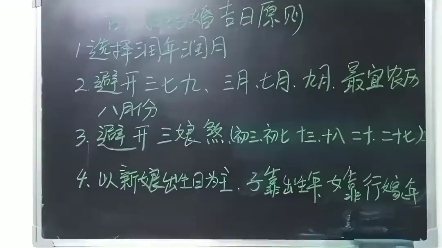 婚吉日原则
1.选择润年润月
2.避开三七九、三月.七月.九月.最宜农历
八月份
3.避开三娘煞(初三.初七十三.十八二十.二十七)
4.以新娘出生日为主.子靠出生年女靠行嫁年